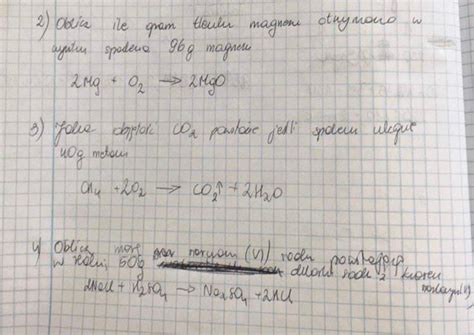 2) Oblicz ile gram tlenku magnezu otrzymano w
wyniku spalenia 96g magnezu
2Mg + O₂ → 2MgO
3) Jaka objętość CO₂ powstanie jeśli spaleniu ulegnie
40g metanu
CH₄ + 2O₂ → CO₂↑ + 2H₂O
4) Oblicz masę siarczanu (VI) sodu powstającą
w reakcji 50g chlorku sodu z kwasem
siarkowym VI
2NaCl + H₂SO₄ → Na₂SO₄ + 2HCl